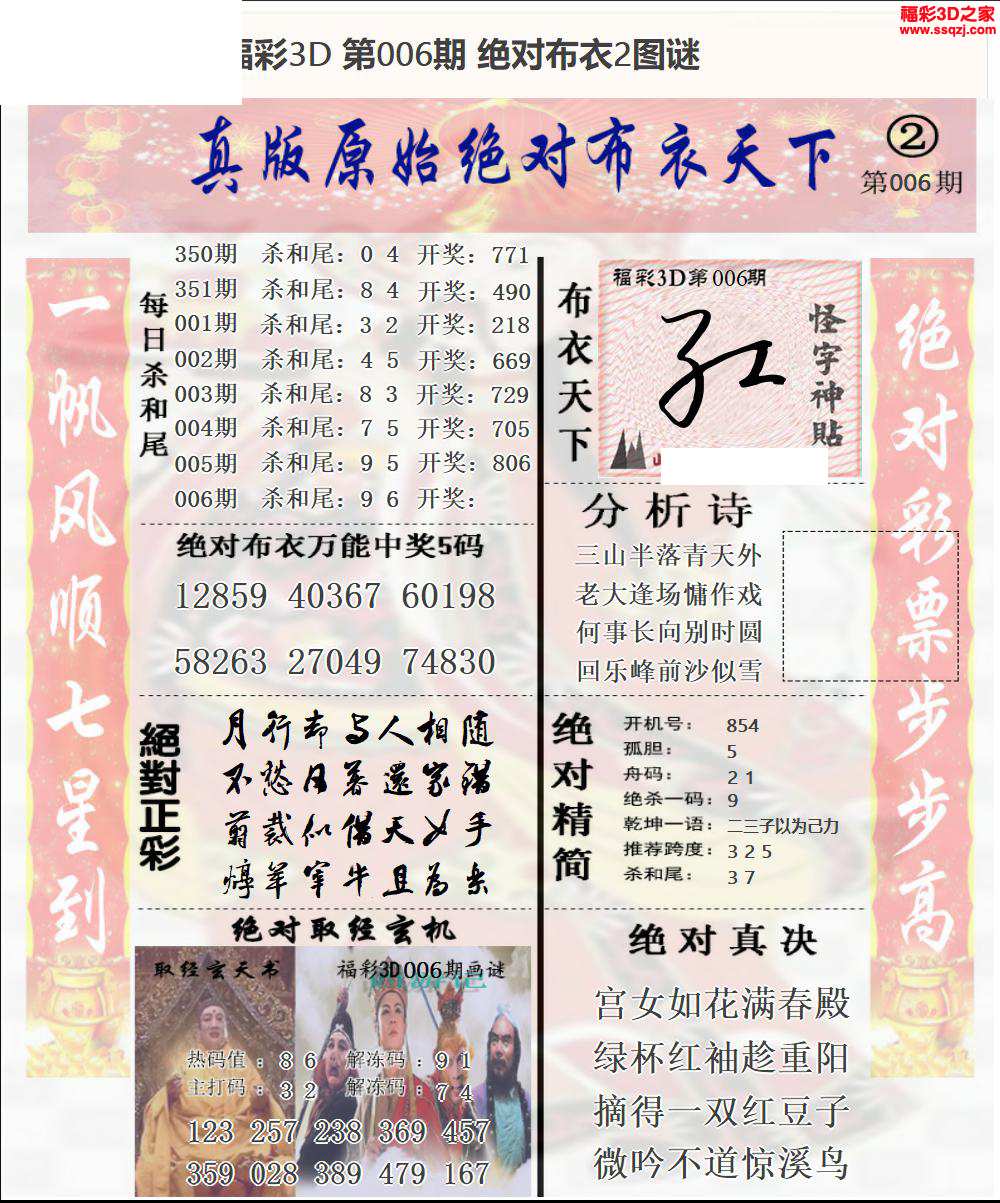 福彩3D之家
www.ssqzj.com
福彩3D 第006期 绝对布衣2图谜
真版原始绝对布衣天下
②
第006期
一帆风顺七星到
每日杀和尾
350期 杀和尾：0 4 开奖：771
351期 杀和尾：8 4 开奖：490
001期 杀和尾：3 2 开奖：218
002期 杀和尾：4 5 开奖：669
003期 杀和尾：8 3 开奖：729
004期 杀和尾：7 5 开奖：705
005期 杀和尾：9 5 开奖：806
006期 杀和尾：9 6 开奖：
绝对布衣万能中奖5码
12859 40367 60198
58263 27049 74830
絕對正彩
月行却与人相随
不愁日暮还家错
剪裁似借天女手
烹羊宰牛且为乐
绝对取经玄机
取经玄天书
福彩3D006期画谜
热码值：8 6 解冻码：9 1
主打码：3 2 解冻码：7 4
123 257 238 369 457
359 028 389 479 167
布衣天下
福彩3D第006期
怪字神貼
分析诗
三山半落青天外
老大逢场慵作戏
何事长向别时圆
回乐峰前沙似雪
绝对精简
开机号： 854
孤胆： 5
舟码： 2 1
绝杀一码： 9
乾坤一语： 二三子以为己力
推荐跨度： 3 2 5
杀和尾： 3 7
绝对真决
宫女如花满春殿
绿杯红袖趁重阳
摘得一双红豆子
微吟不道惊溪鸟
绝对彩票步步高